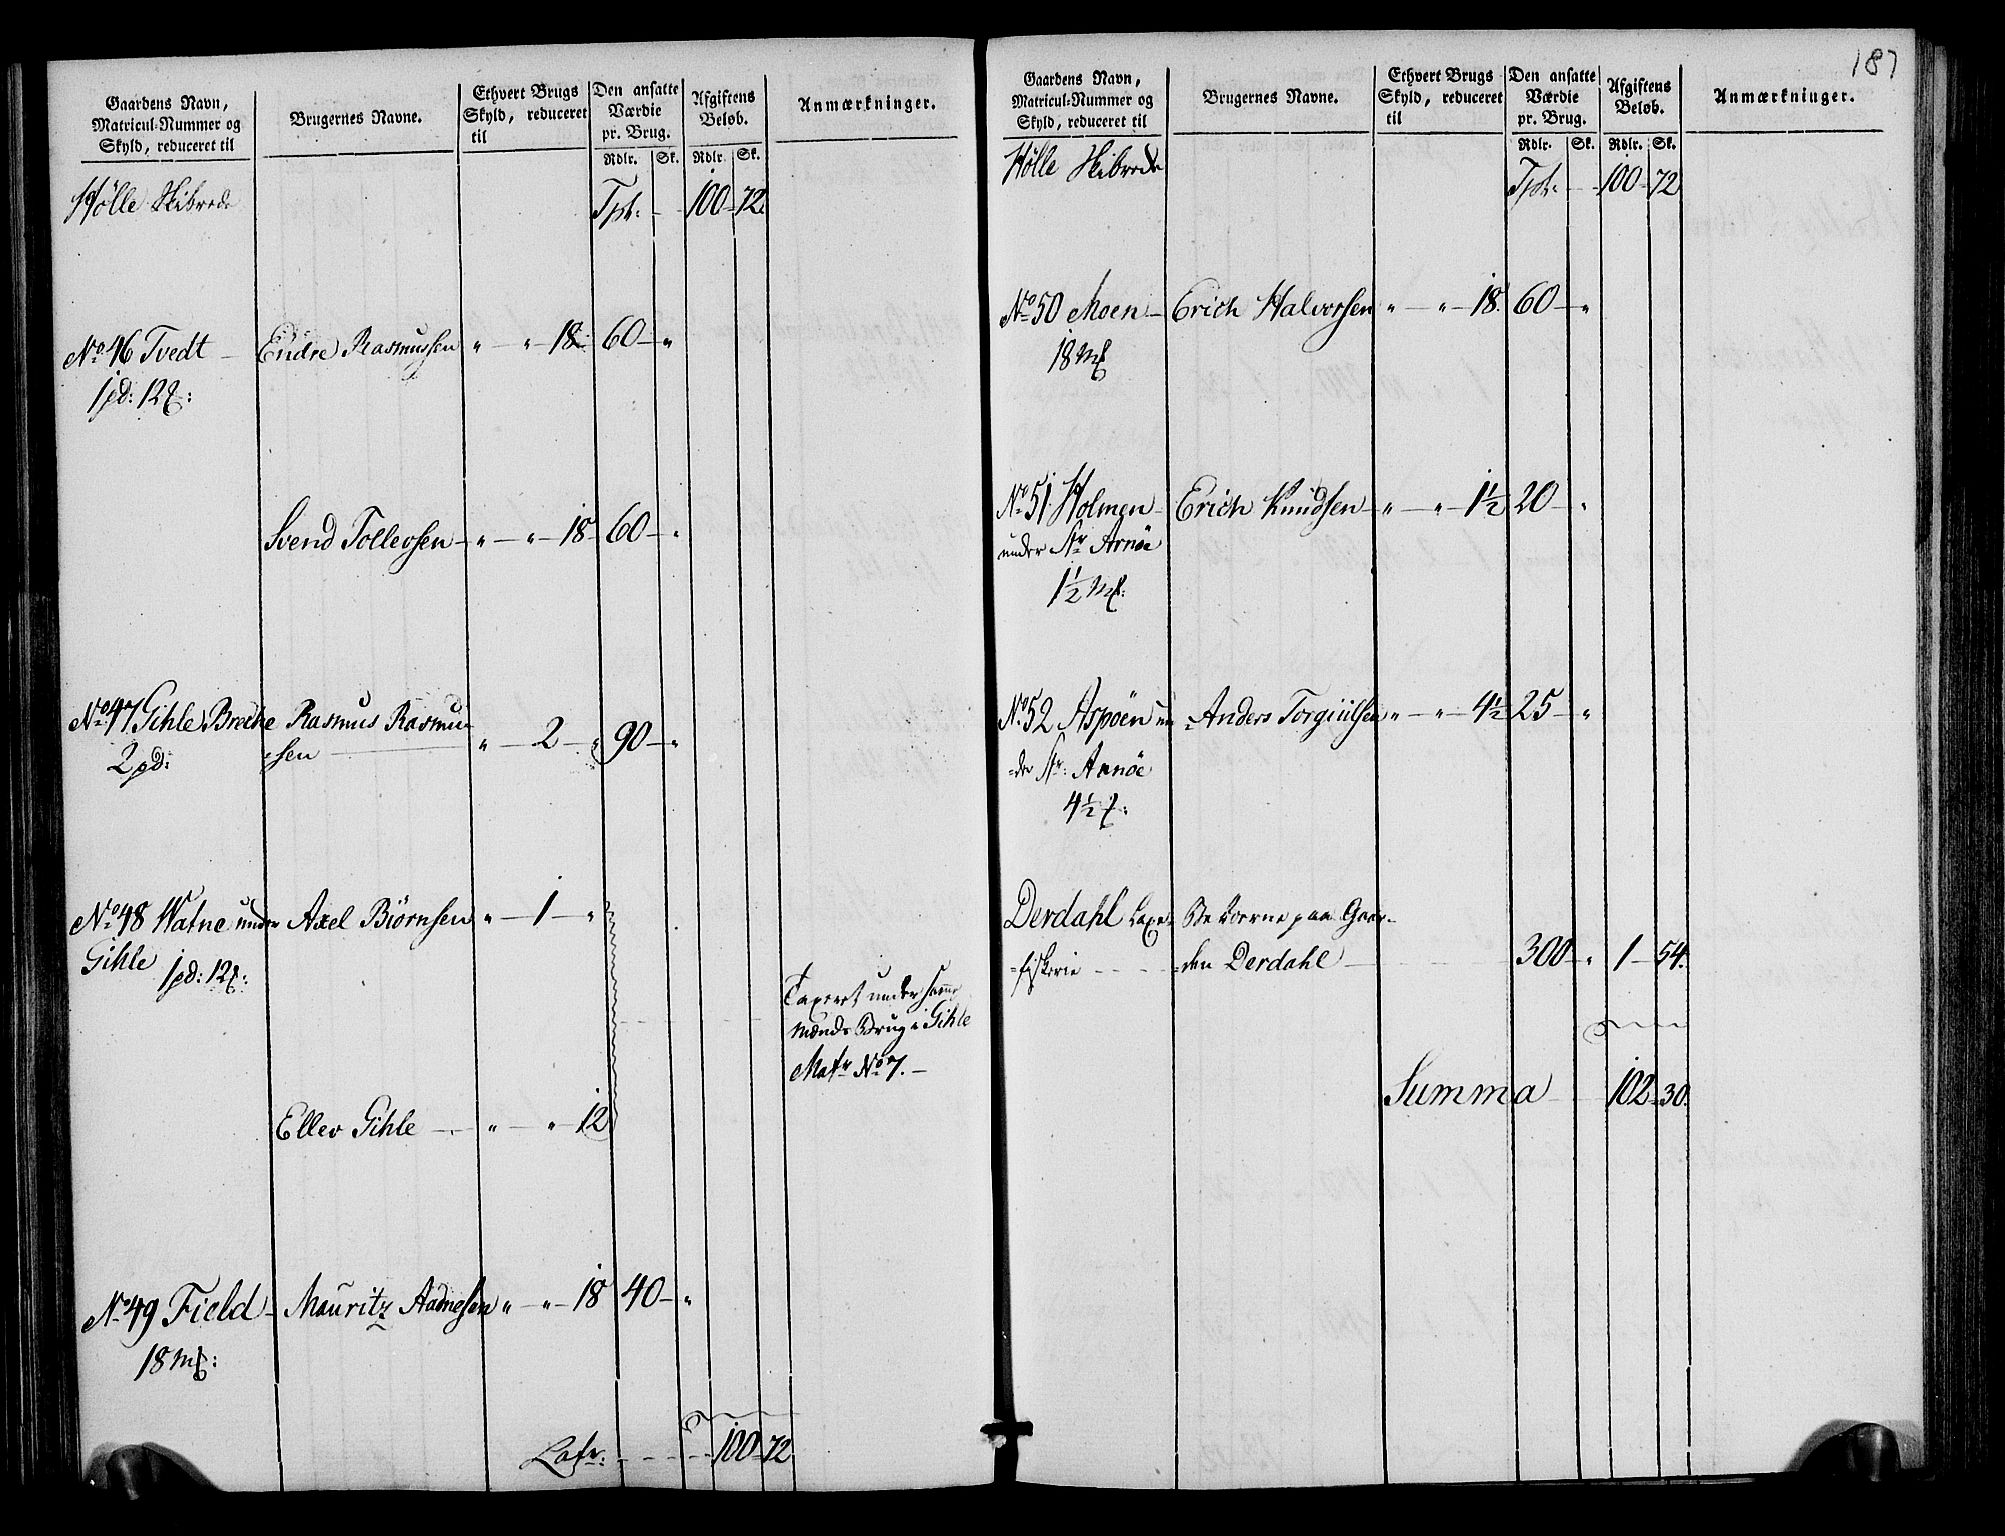 Gaardens Navn, Matricul-Nummer og Skyld, reduceret til
Brugernes Navne.
Ethvert Brugs Skyld, reduceret til
Den ansatte Værdie pr. Brug.
Afgiftens Beløb.
Anmærkninger.
Rdlr. Sk. Rdlr. Sk.
Hølle Skibrede Tpt: 100 - 72.
No 46 Tvedt - Endre Rasmussen " - " - 18 - 60 - "
1 pd: 12
Svend Tollevsen - " - " - 18 - 60 - "
No 47 Gihle Breche Rasmus Rasmu-
2 pd: =sen " - 2 - " 90 - "
No 48 Watne under Axel Biörnsen " - 1 - "
Gihle 1 pd: 12
Taxeret under samme
Mænds Brug i Gihle
Matr No 7. -
Ellev Gihle - " " - 12
No 49 Field - Mauritz Aadnesen " - " - 18 40 - "
18 M
Latr: 100 - 72
187
Gaardens Navn, Matricul-Nummer og Skyld, reduceret til
Brugernes Navne.
Ethvert Brugs Skyld, reduceret til
Den ansatte Værdie pr. Brug.
Afgiftens Beløb.
Anmærkninger.
Rdlr. Sk. Rdlr. Sk.
Hølle Skibrede Tpt: 100 - 72
No 50 Moen - Erich Halvorsen " - " - 18. 60 - "
18 M
No 51 Holmen - Erich Knudsen - " - " - 1½ 20 - "
under Str Arnöe
1½ M:
No 52 Aspöen un- Anders Torgiulsen " - " - 4½ 25 - "
=der Str: Arnöe
4½
Derdahl Laxe- paa Gaar-
=fiskerie =den Derdahl 300 - " 1 - 54.
Summa 102 - 30.